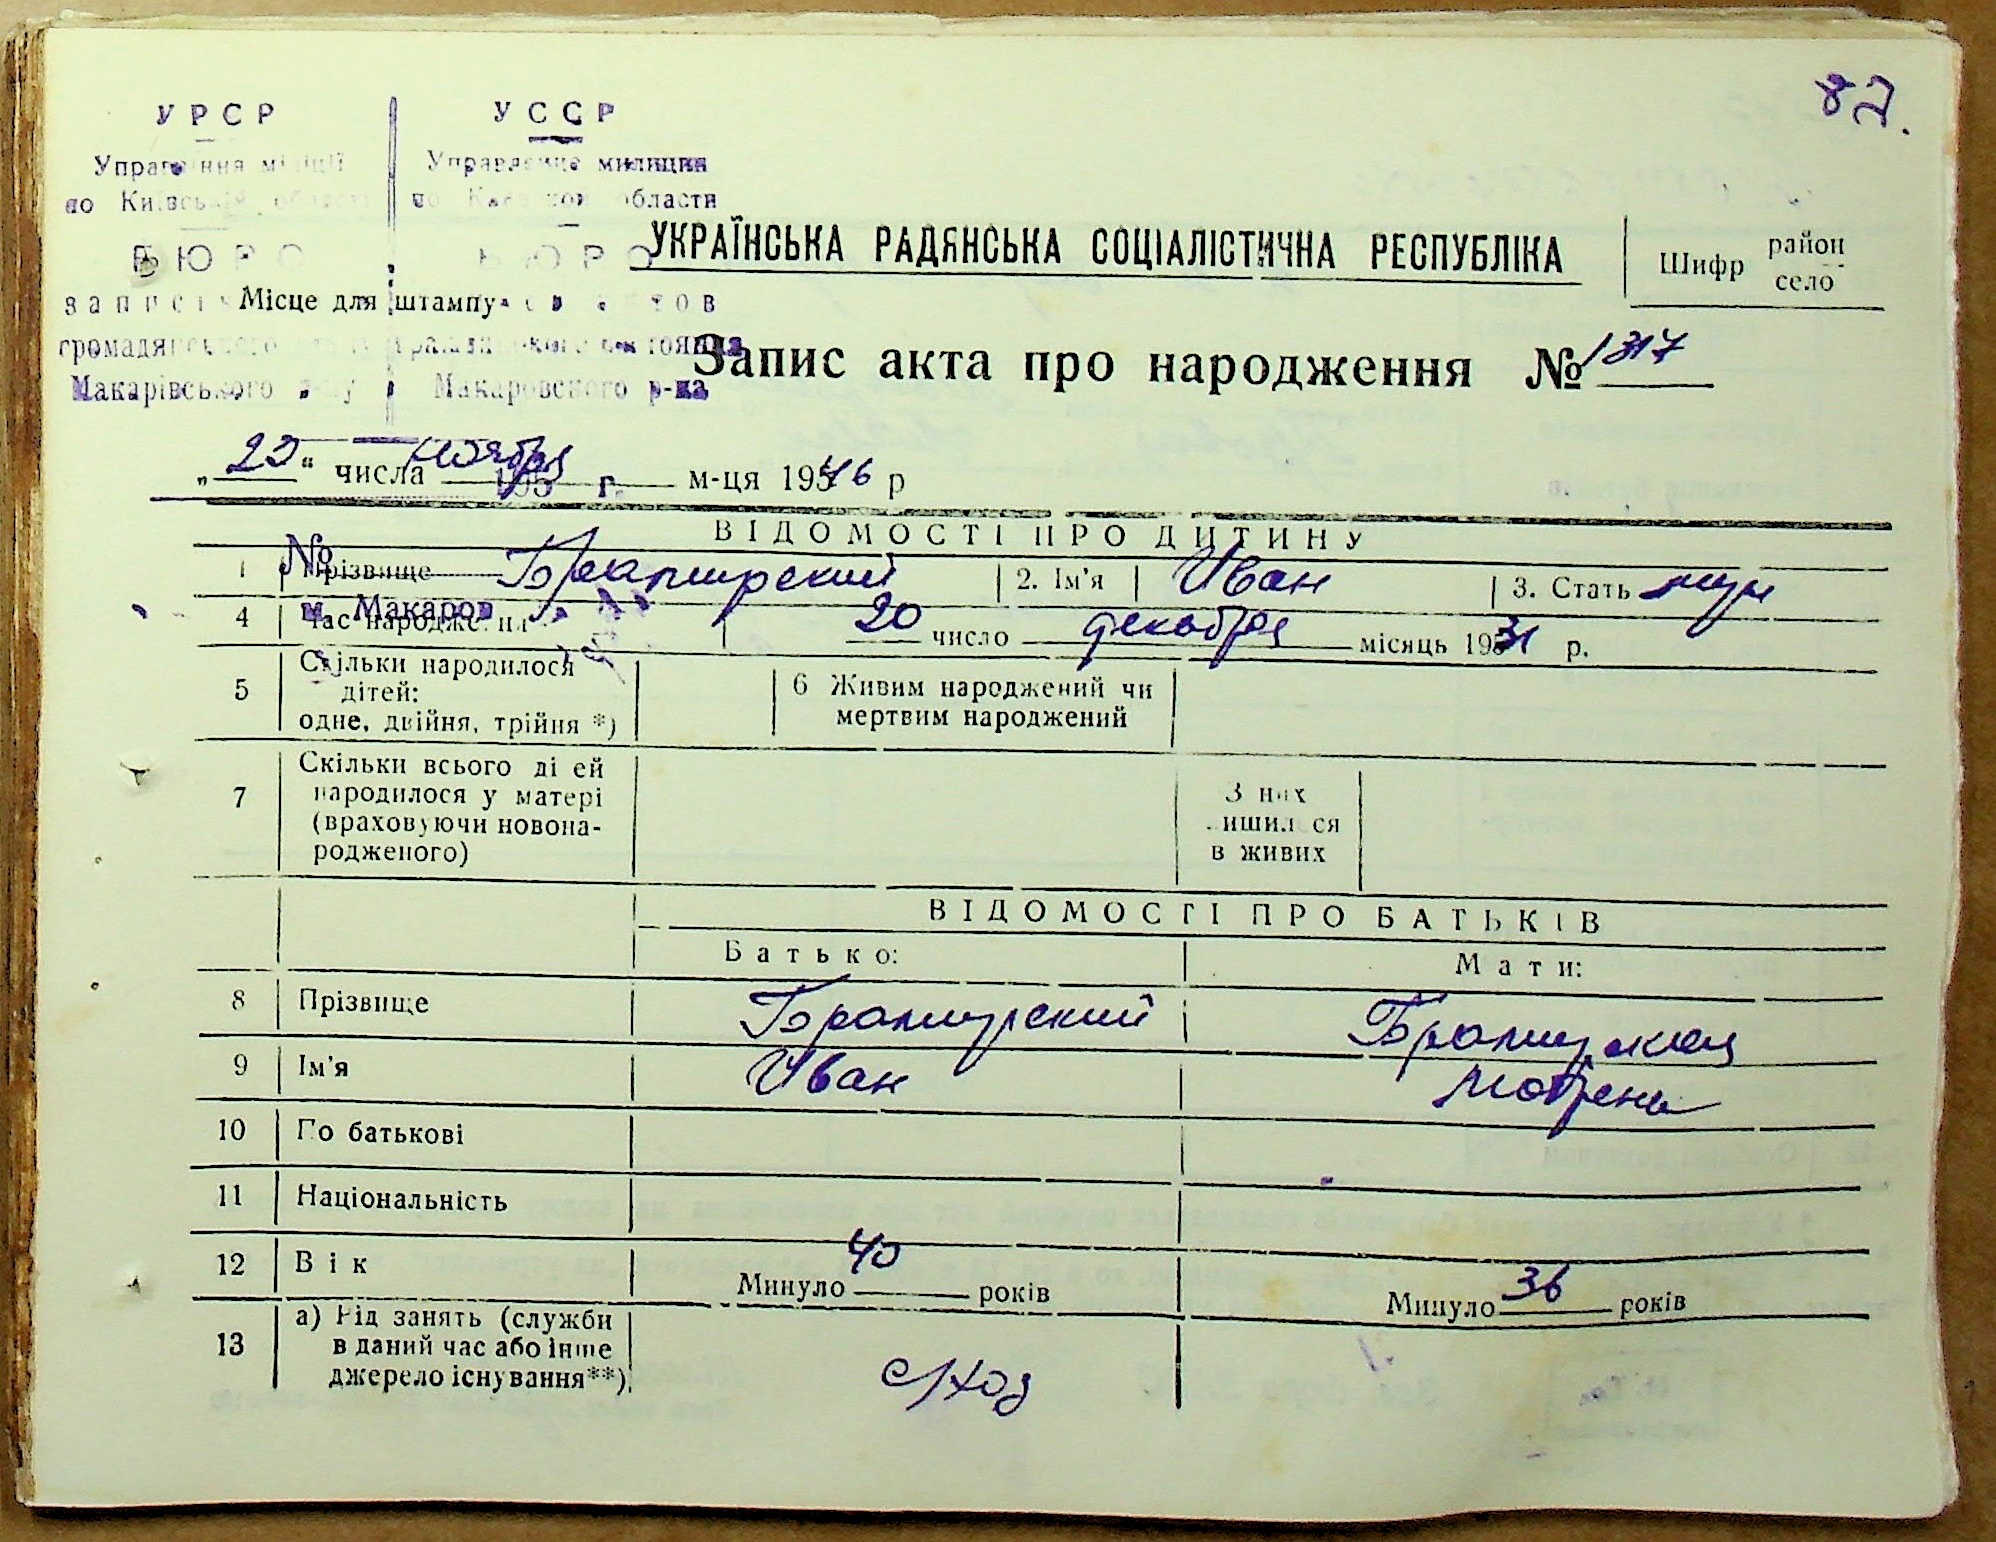 87.
УРСР
УССР
Управління міліції
Управление милиции
по Київській області
по Киевской области
БЮРО
БЮРО
УКРАЇНСЬКА РАДЯНСЬКА СОЦІАЛІСТИЧНА РЕСПУБЛІКА
Шифр район
село
Місце для штампу
громадянського
Макарівського р-ну
Макаровского р-на
Запис акта про народження № 1317
„20" числа ноября м-ця 1946 р
195 г.
ВІДОМОСТІ ПРО ДИТИНУ
№
1 Прізвище
2. Ім'я Иван
3. Стать муж
м. Макаров
4 Час народження 20 число декабря місяць 1931 р.
5 Скільки народилося
дітей:
одне, двійня, трійня *)
6 Живим народжений чи
мертвим народжений
7 Скільки всього дітей
народилося у матері
(враховуючи новона-
родженого)
З них
лишилося
в живих
ВІДОМОСТІ ПРО БАТЬКІВ
Батько:
Мати:
8 Прізвище
9 Ім'я Иван Мотрена
10 По батькові
11 Національність
12 Вік Минуло 40 років Минуло 36 років
13 а) Рід занять (служби
в даний час або інше
джерело існування**)
с/хоз